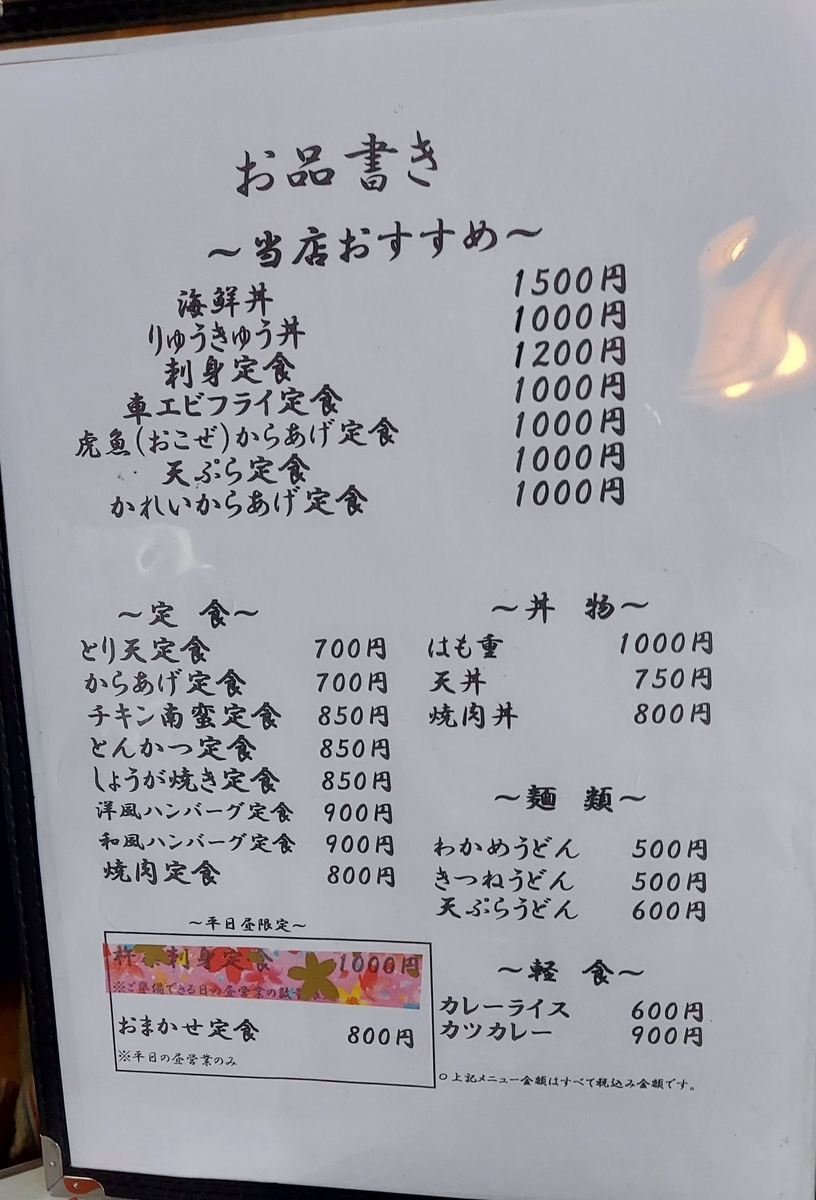 お品書き
～当店おすすめ～
海鮮丼 1500円
りゅうきゅう丼 1000円
刺身定食 1200円
車エビフライ定食 1000円
虎魚(おこぜ)からあげ定食 1000円
天ぷら定食 1000円
かれいからあげ定食 1000円
～定 食～
とり天定食 700円
からあげ定食 700円
チキン南蛮定食 850円
とんかつ定食 850円
しょうが焼き定食 850円
洋風ハンバーグ定食 900円
和風ハンバーグ定食 900円
焼肉定食 800円
～平日昼限定～
刺身定食 1000円
※ご準備できる日の昼営業の
おまかせ定食 800円
※平日の昼営業のみ
～丼 物～
はも重 1000円
天丼 750円
焼肉丼 800円
～麺 類～
わかめうどん 500円
きつねうどん 500円
天ぷらうどん 600円
～軽 食～
カレーライス 600円
カツカレー 900円
○上記メニュー金額はすべて税込み金額です。